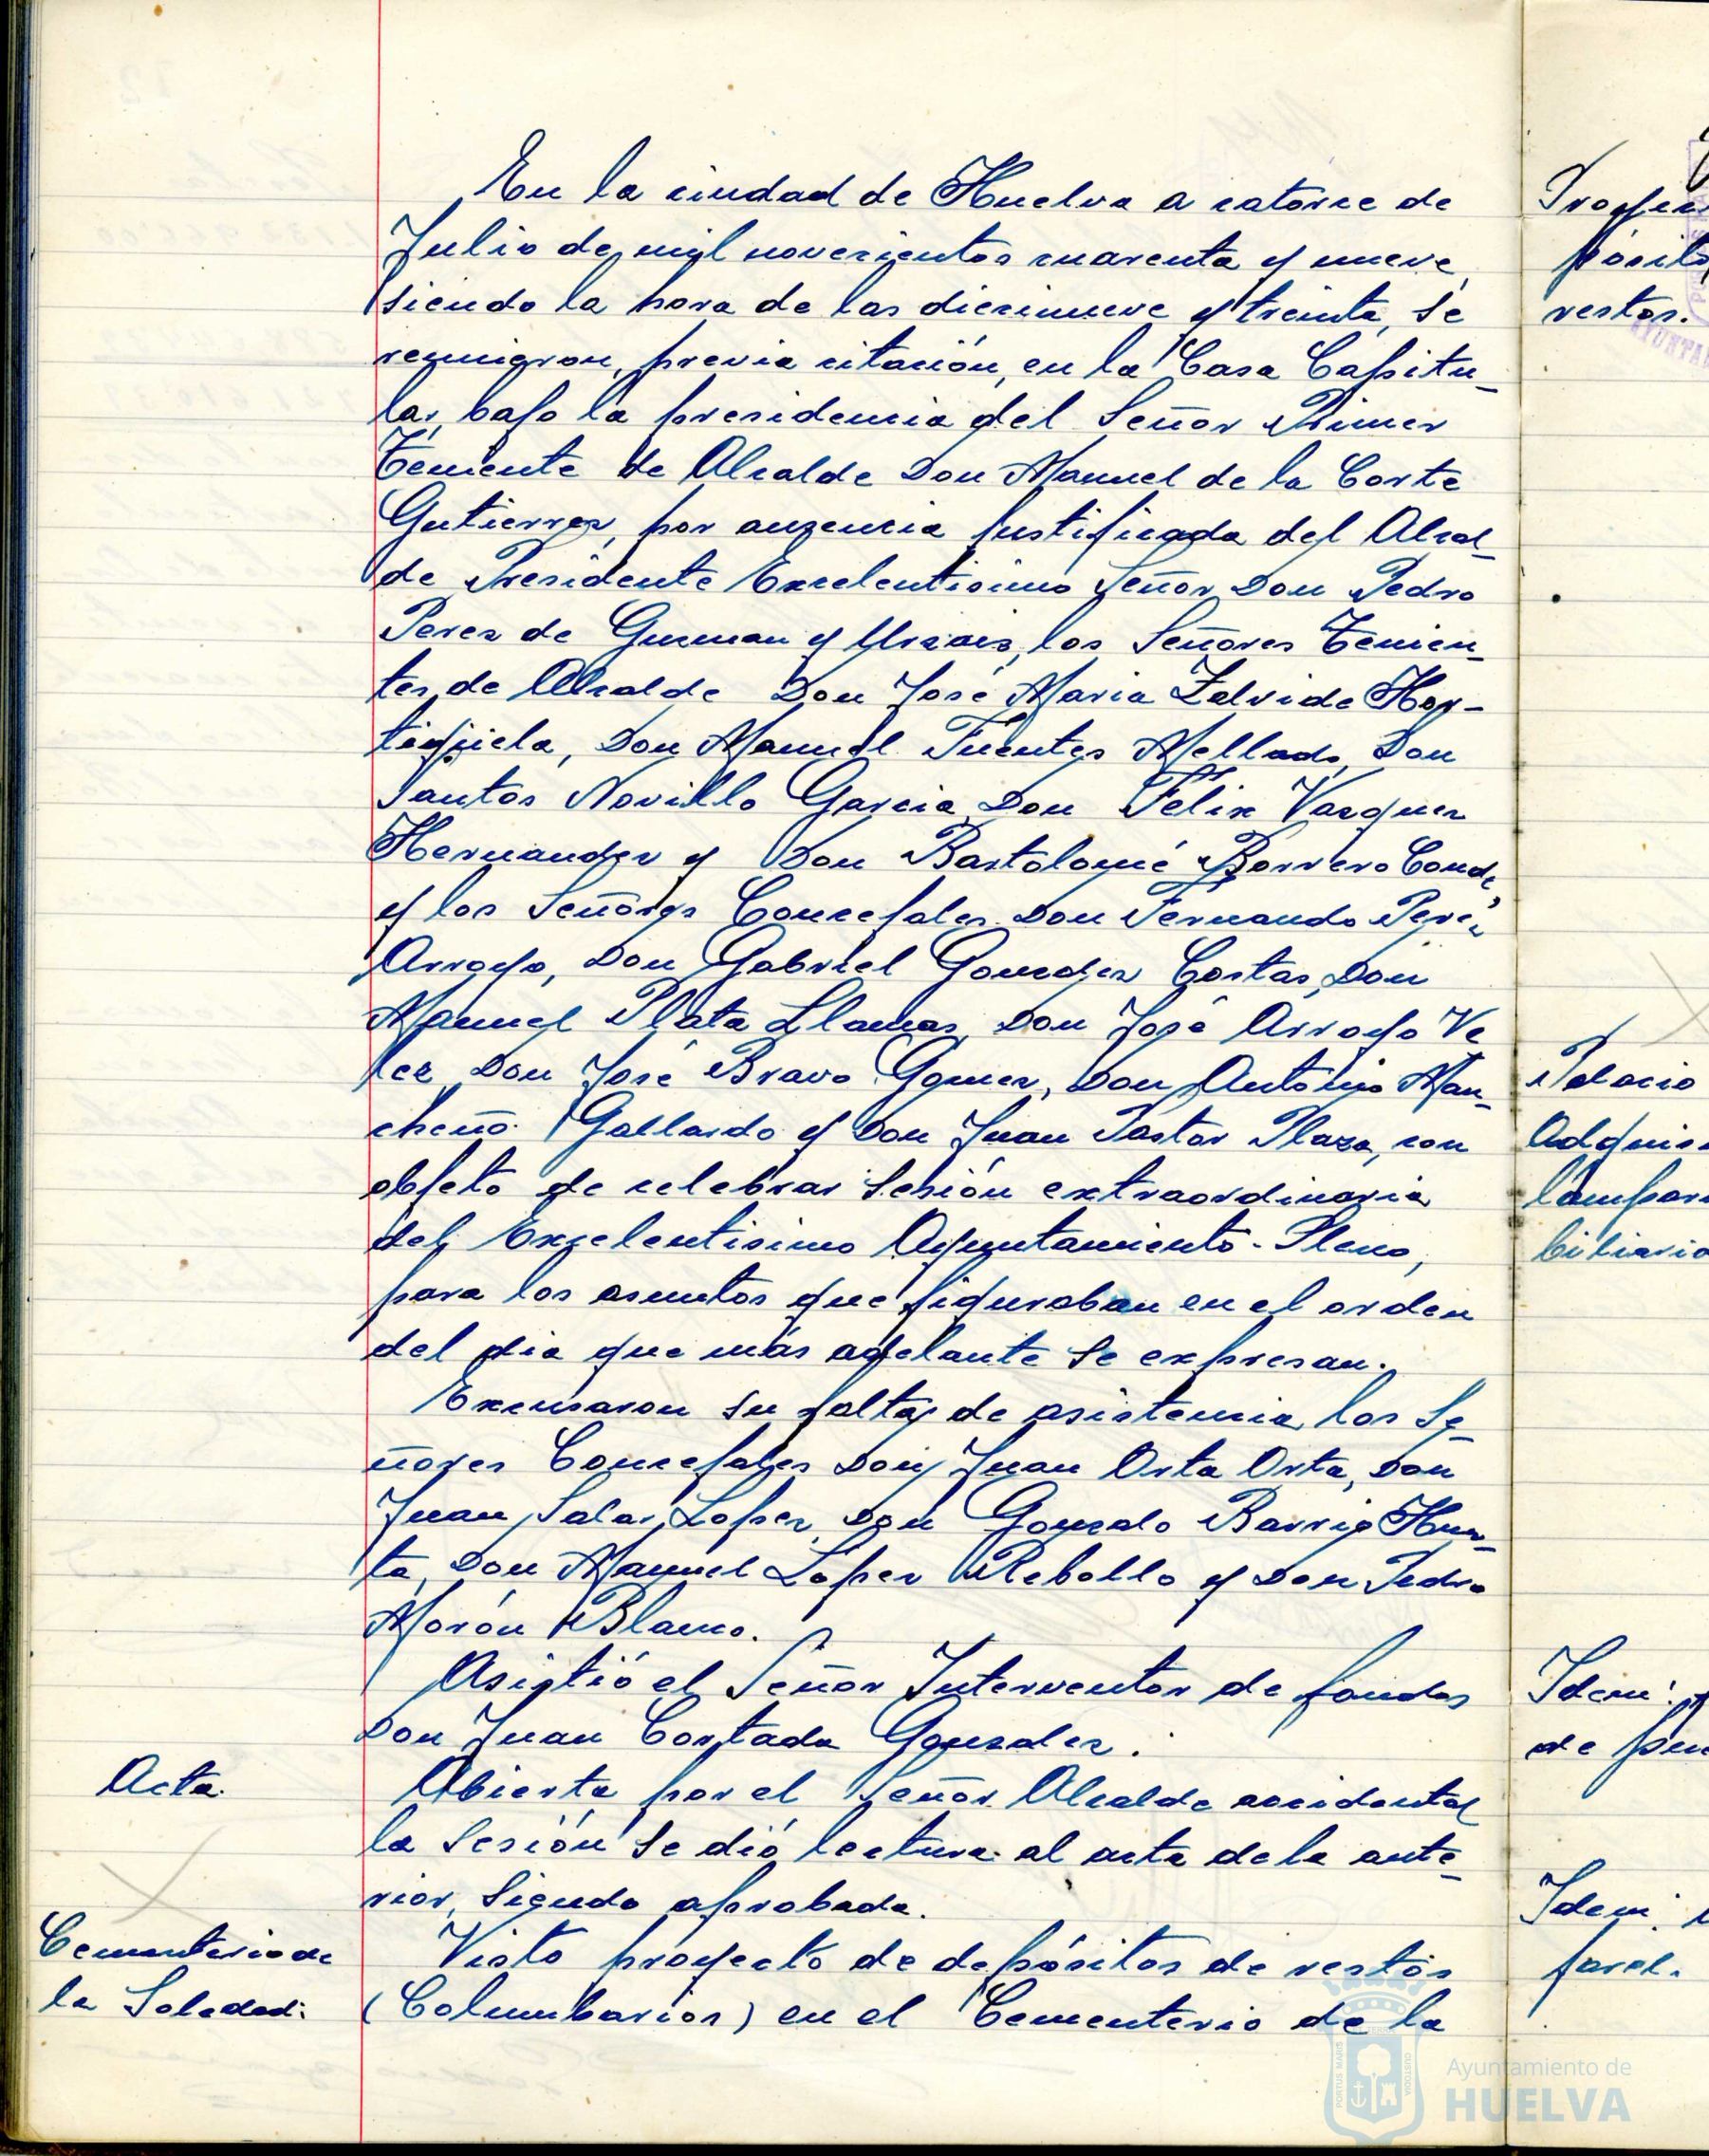 En la ciudad de Huelva a catorce de
Julio de mil novecientos cuarenta y nueve,
siendo la hora de las diecinueve y treinta, se
reunieron, previa citación, en la Casa Capitu-
lar, bajo la presidencia del Señor Primer
Teniente de Alcalde Don Manuel de la Corte
Gutierrez, por ausencia justificada del Alcal-
de Presidente Excelentisimo Señor Don Pedro
Perez de Guzman y Urzaiz, los Señores Tenien-
tes de Alcalde Don José Maria Zalvide Hor-
tigüela, Don Manuel Fuentes Mellado, Don
Santos Novillo Garcia, Don Felix Vazquez
Hernandez y Don Bartolomé Borrero Conde
y los Señores Concejales Don Fernando Perez
Arroyo, Don Gabriel Gonzalez Costas, Don
Manuel Plata Llamas, Don José Arroyo Ve
lez, Don José Bravo Gomez, Don Antonio Man-
cheño Gallardo y Don Juan Pastor Plaza, con
objeto de celebrar Sesión extraordinaria
del Excelentisimo Ayuntamiento-Pleno,
para los asuntos que figuraban en el orden
del dia que más adelante se expresan.
Excusaron su falta de asistencia los Se-
ñores Concejales Don Juan Orta Orta, Don
Juan Salas Lopez, Don Gonzalo Barrig Huer-
ta, Don Manuel Lopez Rebollo y Don Pedro
Morón Blanco.
Asistió el Señor Interventor de fondos
Don Juan Contada Gonzalez.
Acta.
Abierta por el Señor Alcalde accidental
la Sesión se dió lectura al acta de la ante-
rior, siendo aprobada.
Cementerio de
la Soledad:
Visto proyecto de depósitos de restos
(Columbarios) en el Cementerio de la
restos.
Palacio
Idem:
Idem:
Ayuntamiento de
HUELVA